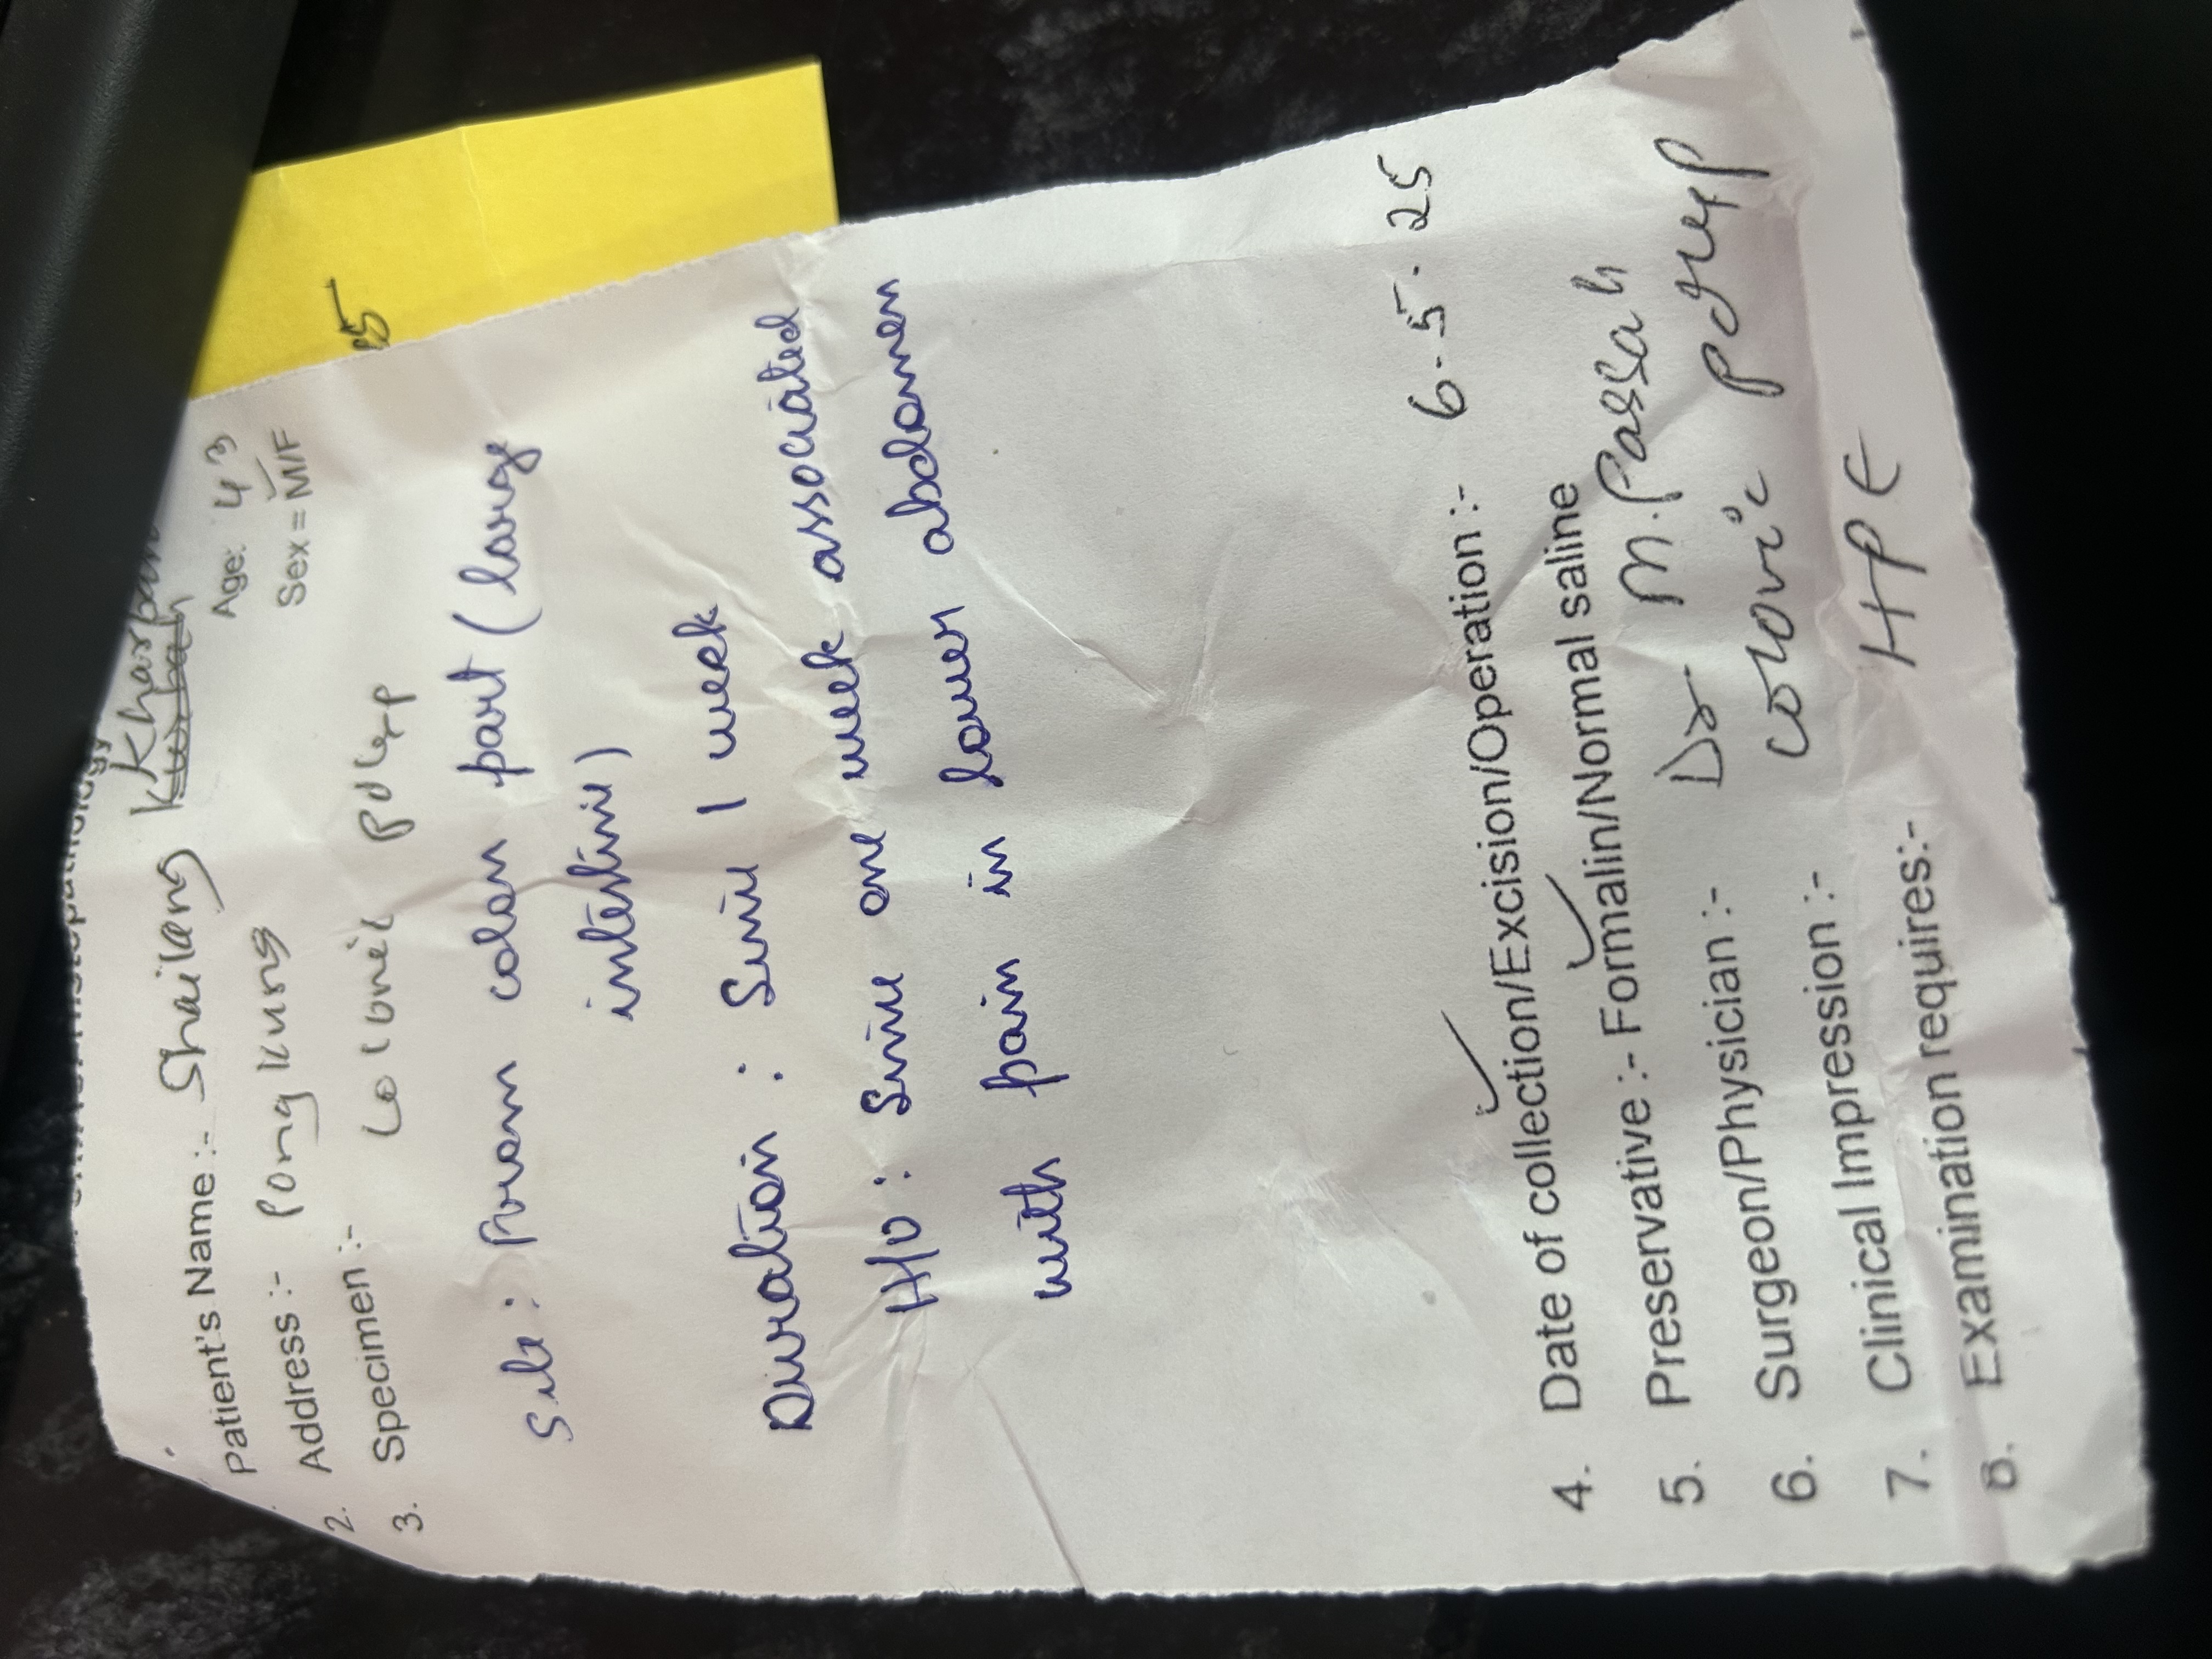 Histopathology
Patient's Name :- Shailang Kharbani
Kurbah
Age: 43
2. Address :- Pongkung
Sex = M/F
3. Specimen :- Colonic polyp
5
Site : From colon part (large
intestine)
Duration : Since 1 week
H/O : Since one week associated
with pain in lower abdomen
4. Date of collection/Excision/Operation :- 6-5-25
5. Preservative :- Formalin/Normal saline
6. Surgeon/Physician :- Dr M. Passah
7. Clinical Impression :- Colonic polyp
8. Examination requires:- HPE